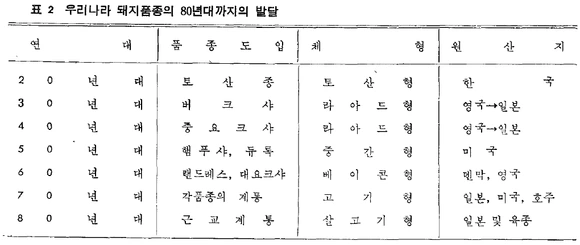 표 2 우리나라 돼지품종의 80년대까지의 발달
연 대 품 종 도 입 체 형 원 산 지
2 0 년 대 토 산 종 토 산 형 한 국
3 0 년 대 버 크 샤 라 아 드 형 영국→일본
4 0 년 대 중 요 크 샤 라 아 드 형 영국→일본
5 0 년 대 햄 푸 샤, 듀 록 중 간 형 미 국
6 0 년 대 랜드베스, 대요크샤 베 이 콘 형 덴막, 영국
7 0 년 대 각품종의 계통 고 기 형 일본, 미국, 호주
8 0 년 대 근 교 계 통 살 고 기 형 일본 및 육종